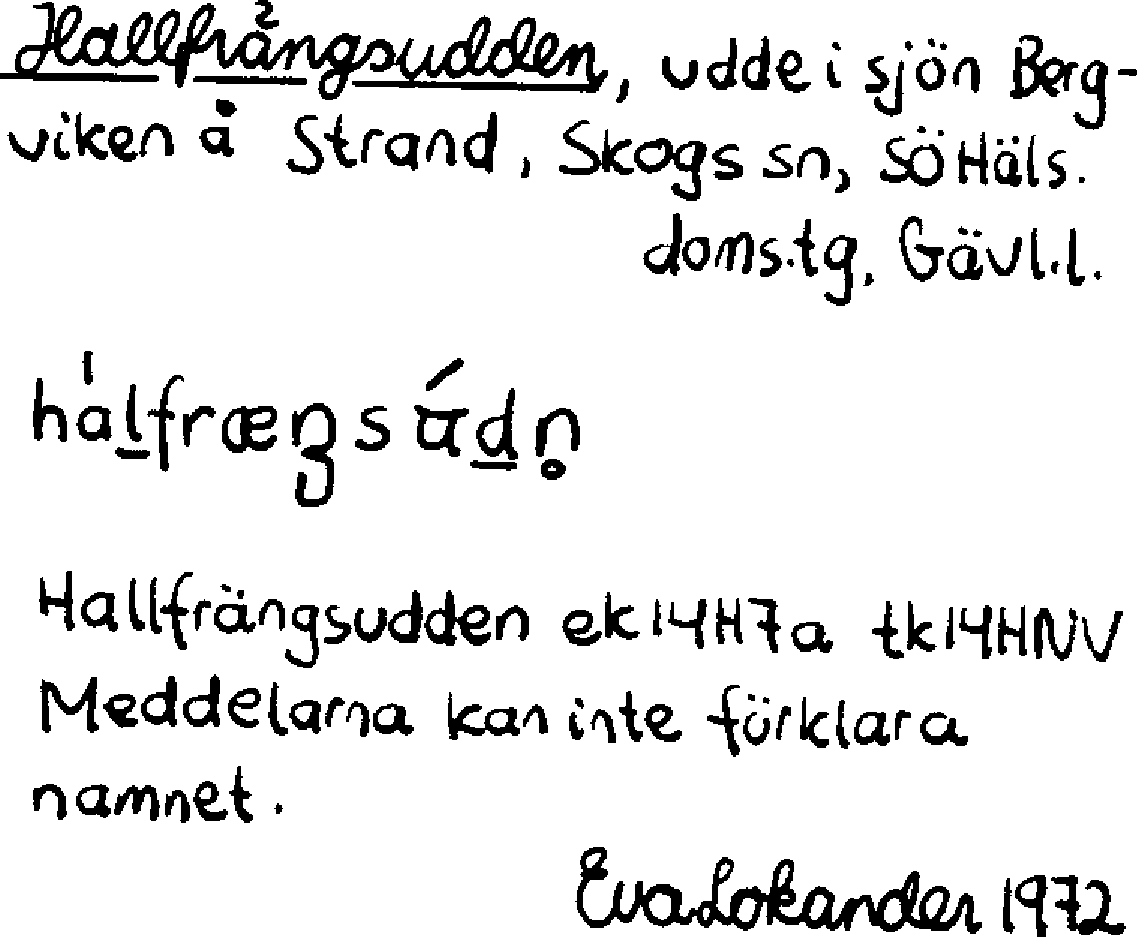 Hallfrängsudden, udde i sjön Berg-
viken å Strand, Skogs sn, SöHäls.
doms.tg, Gävl.l.
Hallfrängsudden ek14H7a tk14HNV
Meddelarna kan inte förklara
namnet.
Eva Lokander 1972